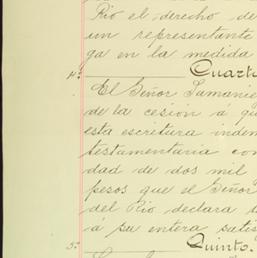 Rio el derecho de
un representante
ga en la medida
Cuarto
4ª El Señor Samanie
de la cesión á qu
esta escritura indem
testamentaria con
dad de dos mil
pesos que el Señor
del Rio declara
á su entera satis
Quinto.
5ª